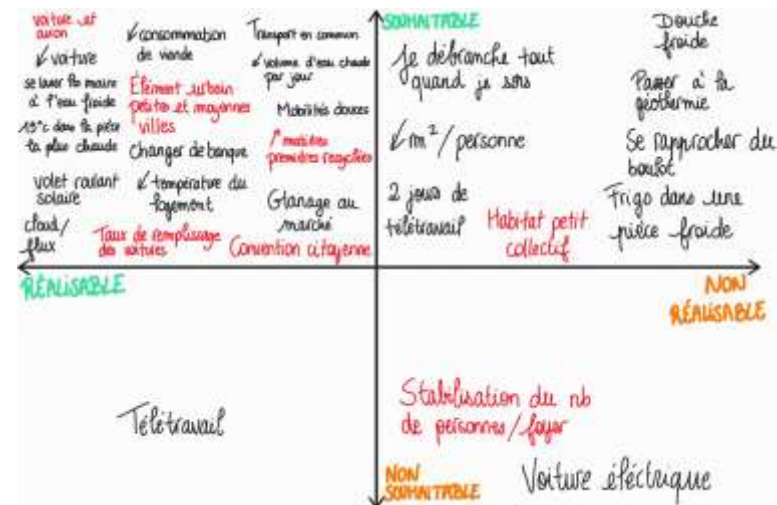 voiture et
avion
↙ voiture
se laver les mains
à l'eau froide
19°c dans la pièce
la plus chaude
volet roulant
solaire
cloud/
flux
↙ consommation
de viande
Élément urbain
petites et moyennes
villes
Changer de banque
↙ température du
logement
Taux de remplissage
des voitures
Transport en commun
↙ volume d'eau chaude
par jour
Mobilités douces
↗ matières
premières recyclées
Glanage au
marché
Convention citoyenne
SOUHAITABLE
Je débranche tout
quand je sors
↙ m²/personne
2 jours de
télétravail
Habitat petit
collectif
Douche
froide
Passer à la
géothermie
Se rapprocher du
boulot
Frigo dans une
pièce froide
RÉALISABLE
NON
RÉALISABLE
Télétravail
Stabilisation du nb
de personnes/foyer
NON
SOUHAITABLE
Voiture éléctrique